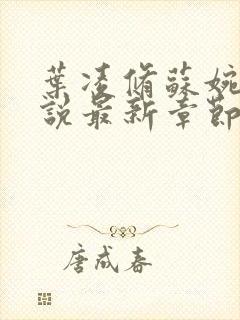 葉凌脩蘇婉
說最新章節
唐咸春